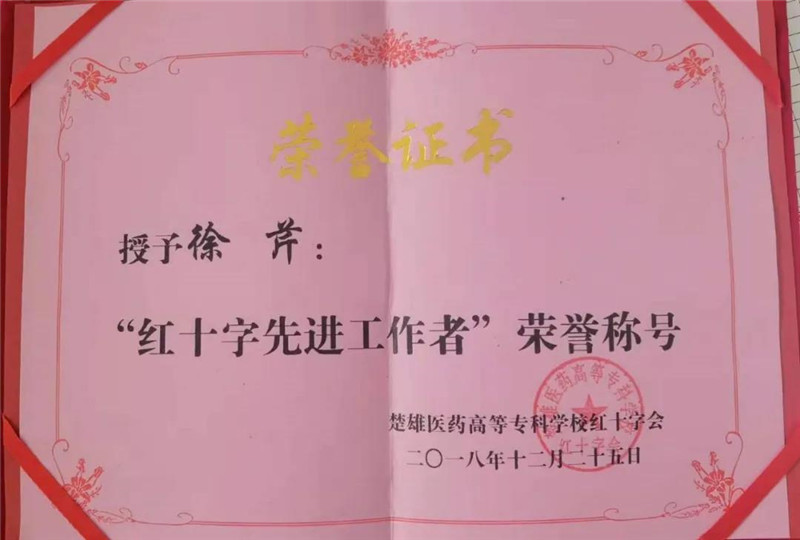 荣誉证书
授予徐 芹：
“红十字先进工作者”荣誉称号
楚雄医药高等专科学校红十字会
二〇一八年十二月二十五日
楚雄医药高等专科学校
红十字会